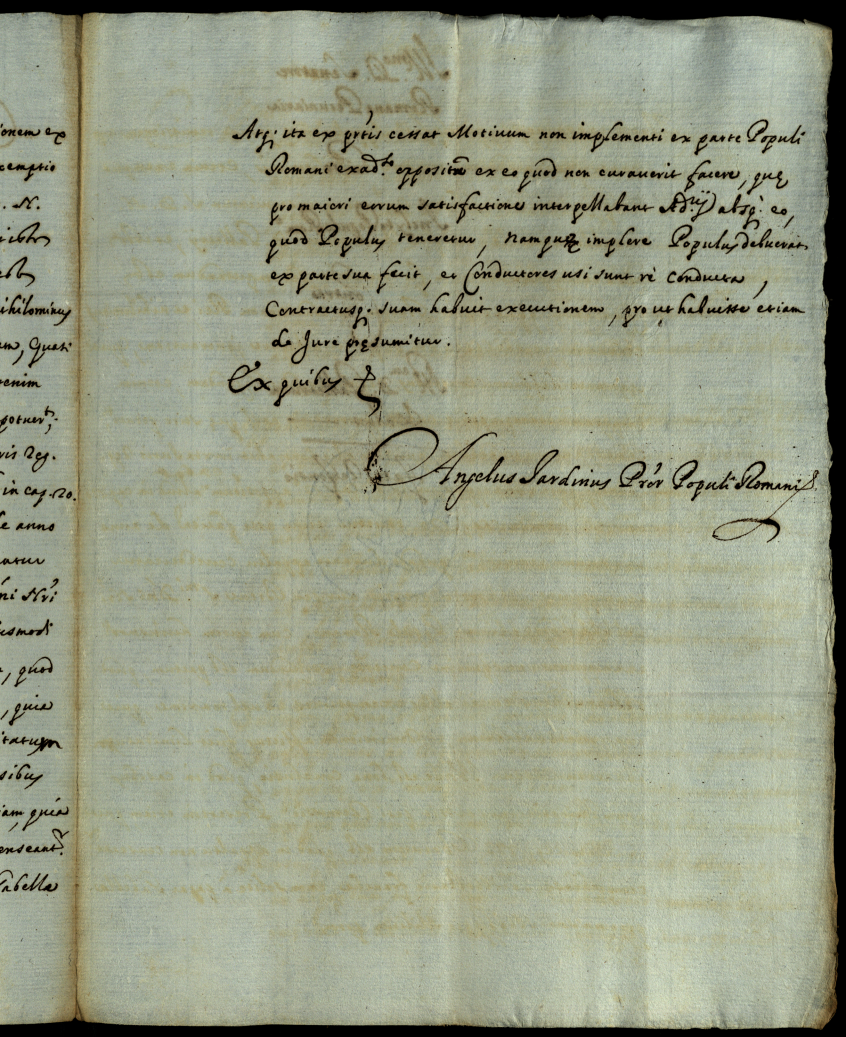 ionem ex
xemptio
. N.
ihilominus
am, Quasi
enim
potuer.t;
ris Reg.
in cap. 20.
e anno
atur
ni Nr̃i
usmodi
, quod
, quia
itatum
sibus
iam, quia
enseant.r
Tabella
Atq; ita ex p̃rtis cessat Motivum non implementi ex parte Populi
Romani ex ad.to opposita ex eo quod non curaverit facere, quę
pro maiori eorum satisfactione interpellabant Ad.rij absq; eo,
quod Populus teneretur, nam quę implere Populus debuerat
ex parte sua fecit, et Conductores usi sunt re conducta,
Contractusq. suam habuit executionem, pro ut habuisse etiam
de Jure pręsumitur.
Ex quibus &
Angelus Jardinus Pro'r Populi Romani